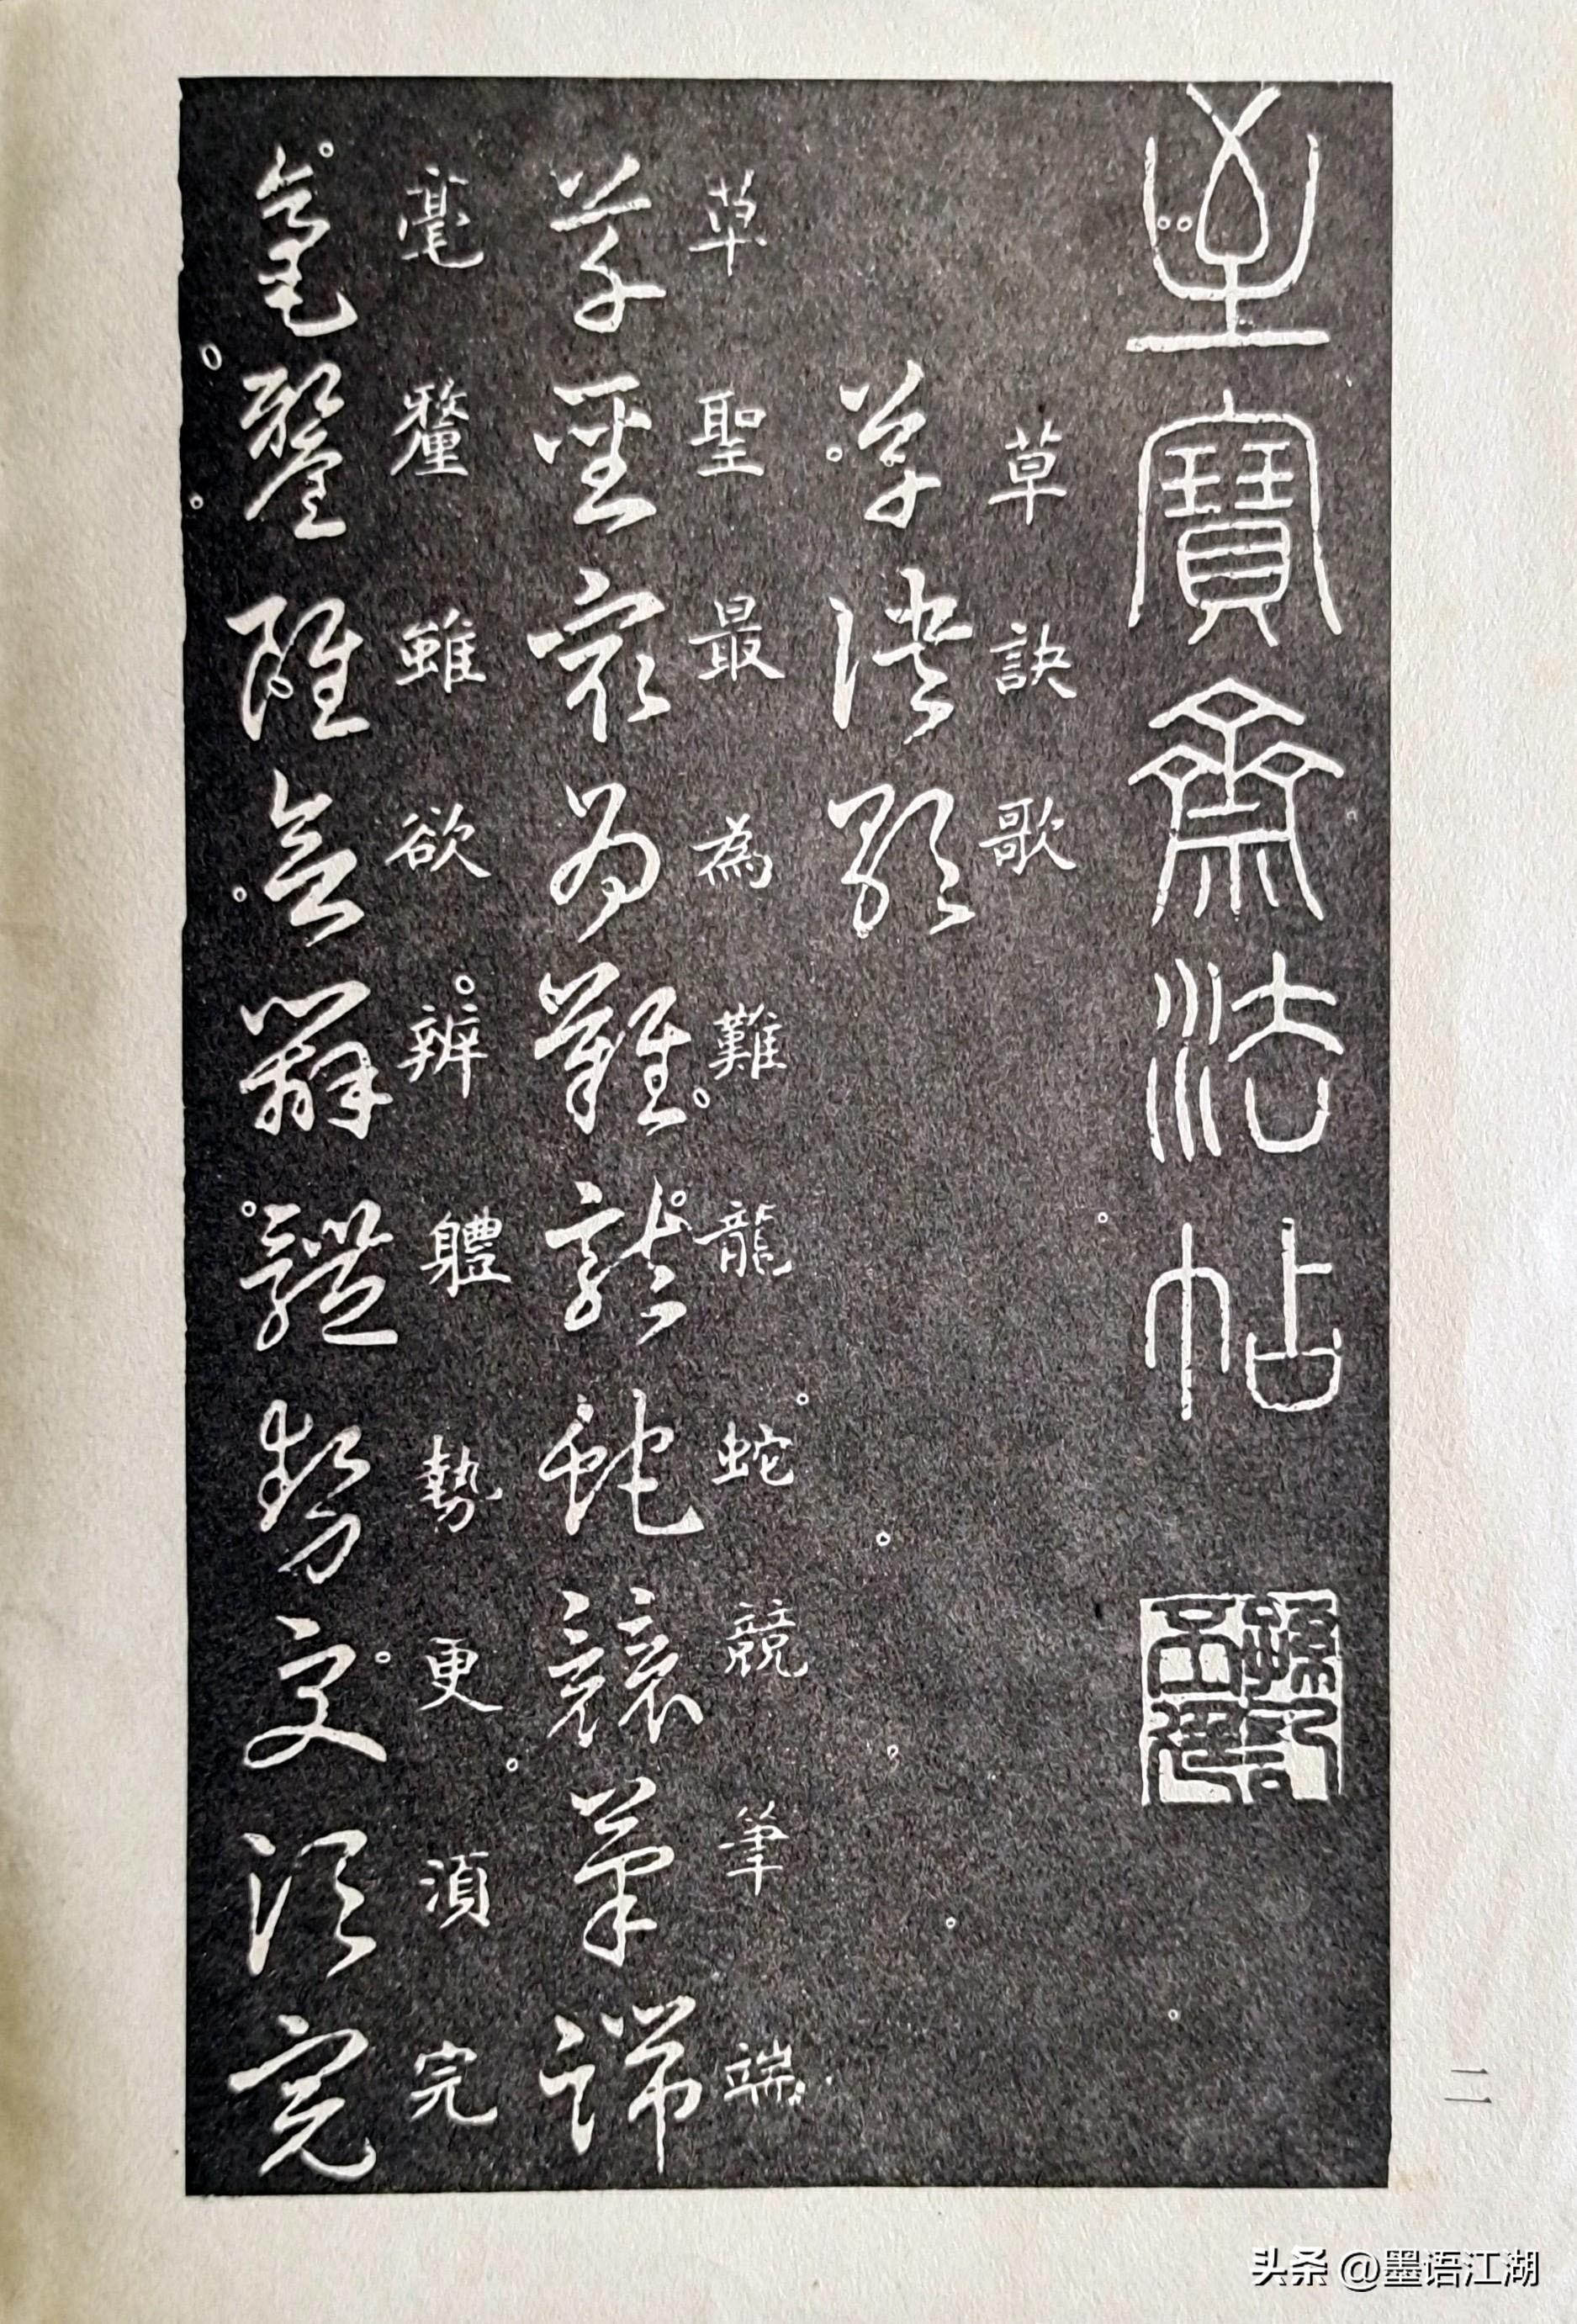 至寶齋法帖
草訣歌
草訣歌
草聖最為難龍蛇競筆端
草聖最為難龍蛇競筆端
毫釐雖欲辨軆勢更湏完
毫釐雖欲辨體勢更須完
二
头条 @墨语江湖